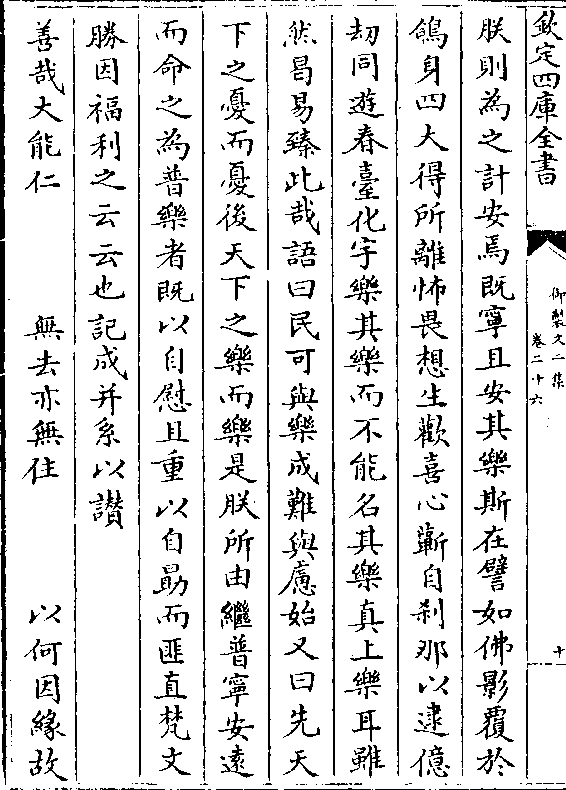 欽定四庫全書
御製文二集
卷二十六
十
朕則為之計安焉既寧且安其樂斯在譬如佛影覆於
鴿身四大得所離怖畏想生歡喜心蘄自剎那以逮億
劫同遊春臺化宇樂其樂而不能名其樂真上樂耳雖
然曷易臻此哉語曰民可與樂成難與慮始又曰先天
下之憂而憂後天下之樂而樂是朕所由繼普寧安遠
而命之為普樂者既以自慰且重以自勗而匪直梵文
勝因福利之云云也記成并系以讃
善哉大能仁 無去亦無住 以何因緣故